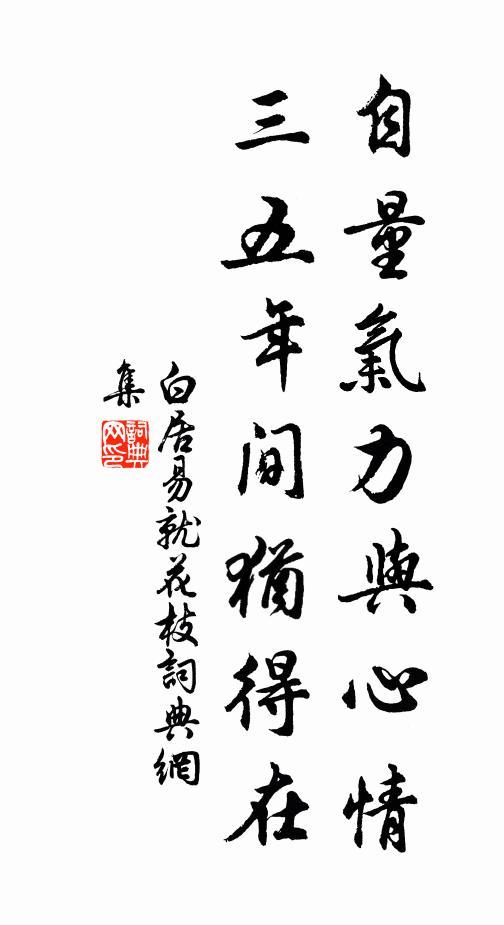 自量氣力與心情
三五年間猶得在
白居易就花枝詞典網
集
詞典
网印